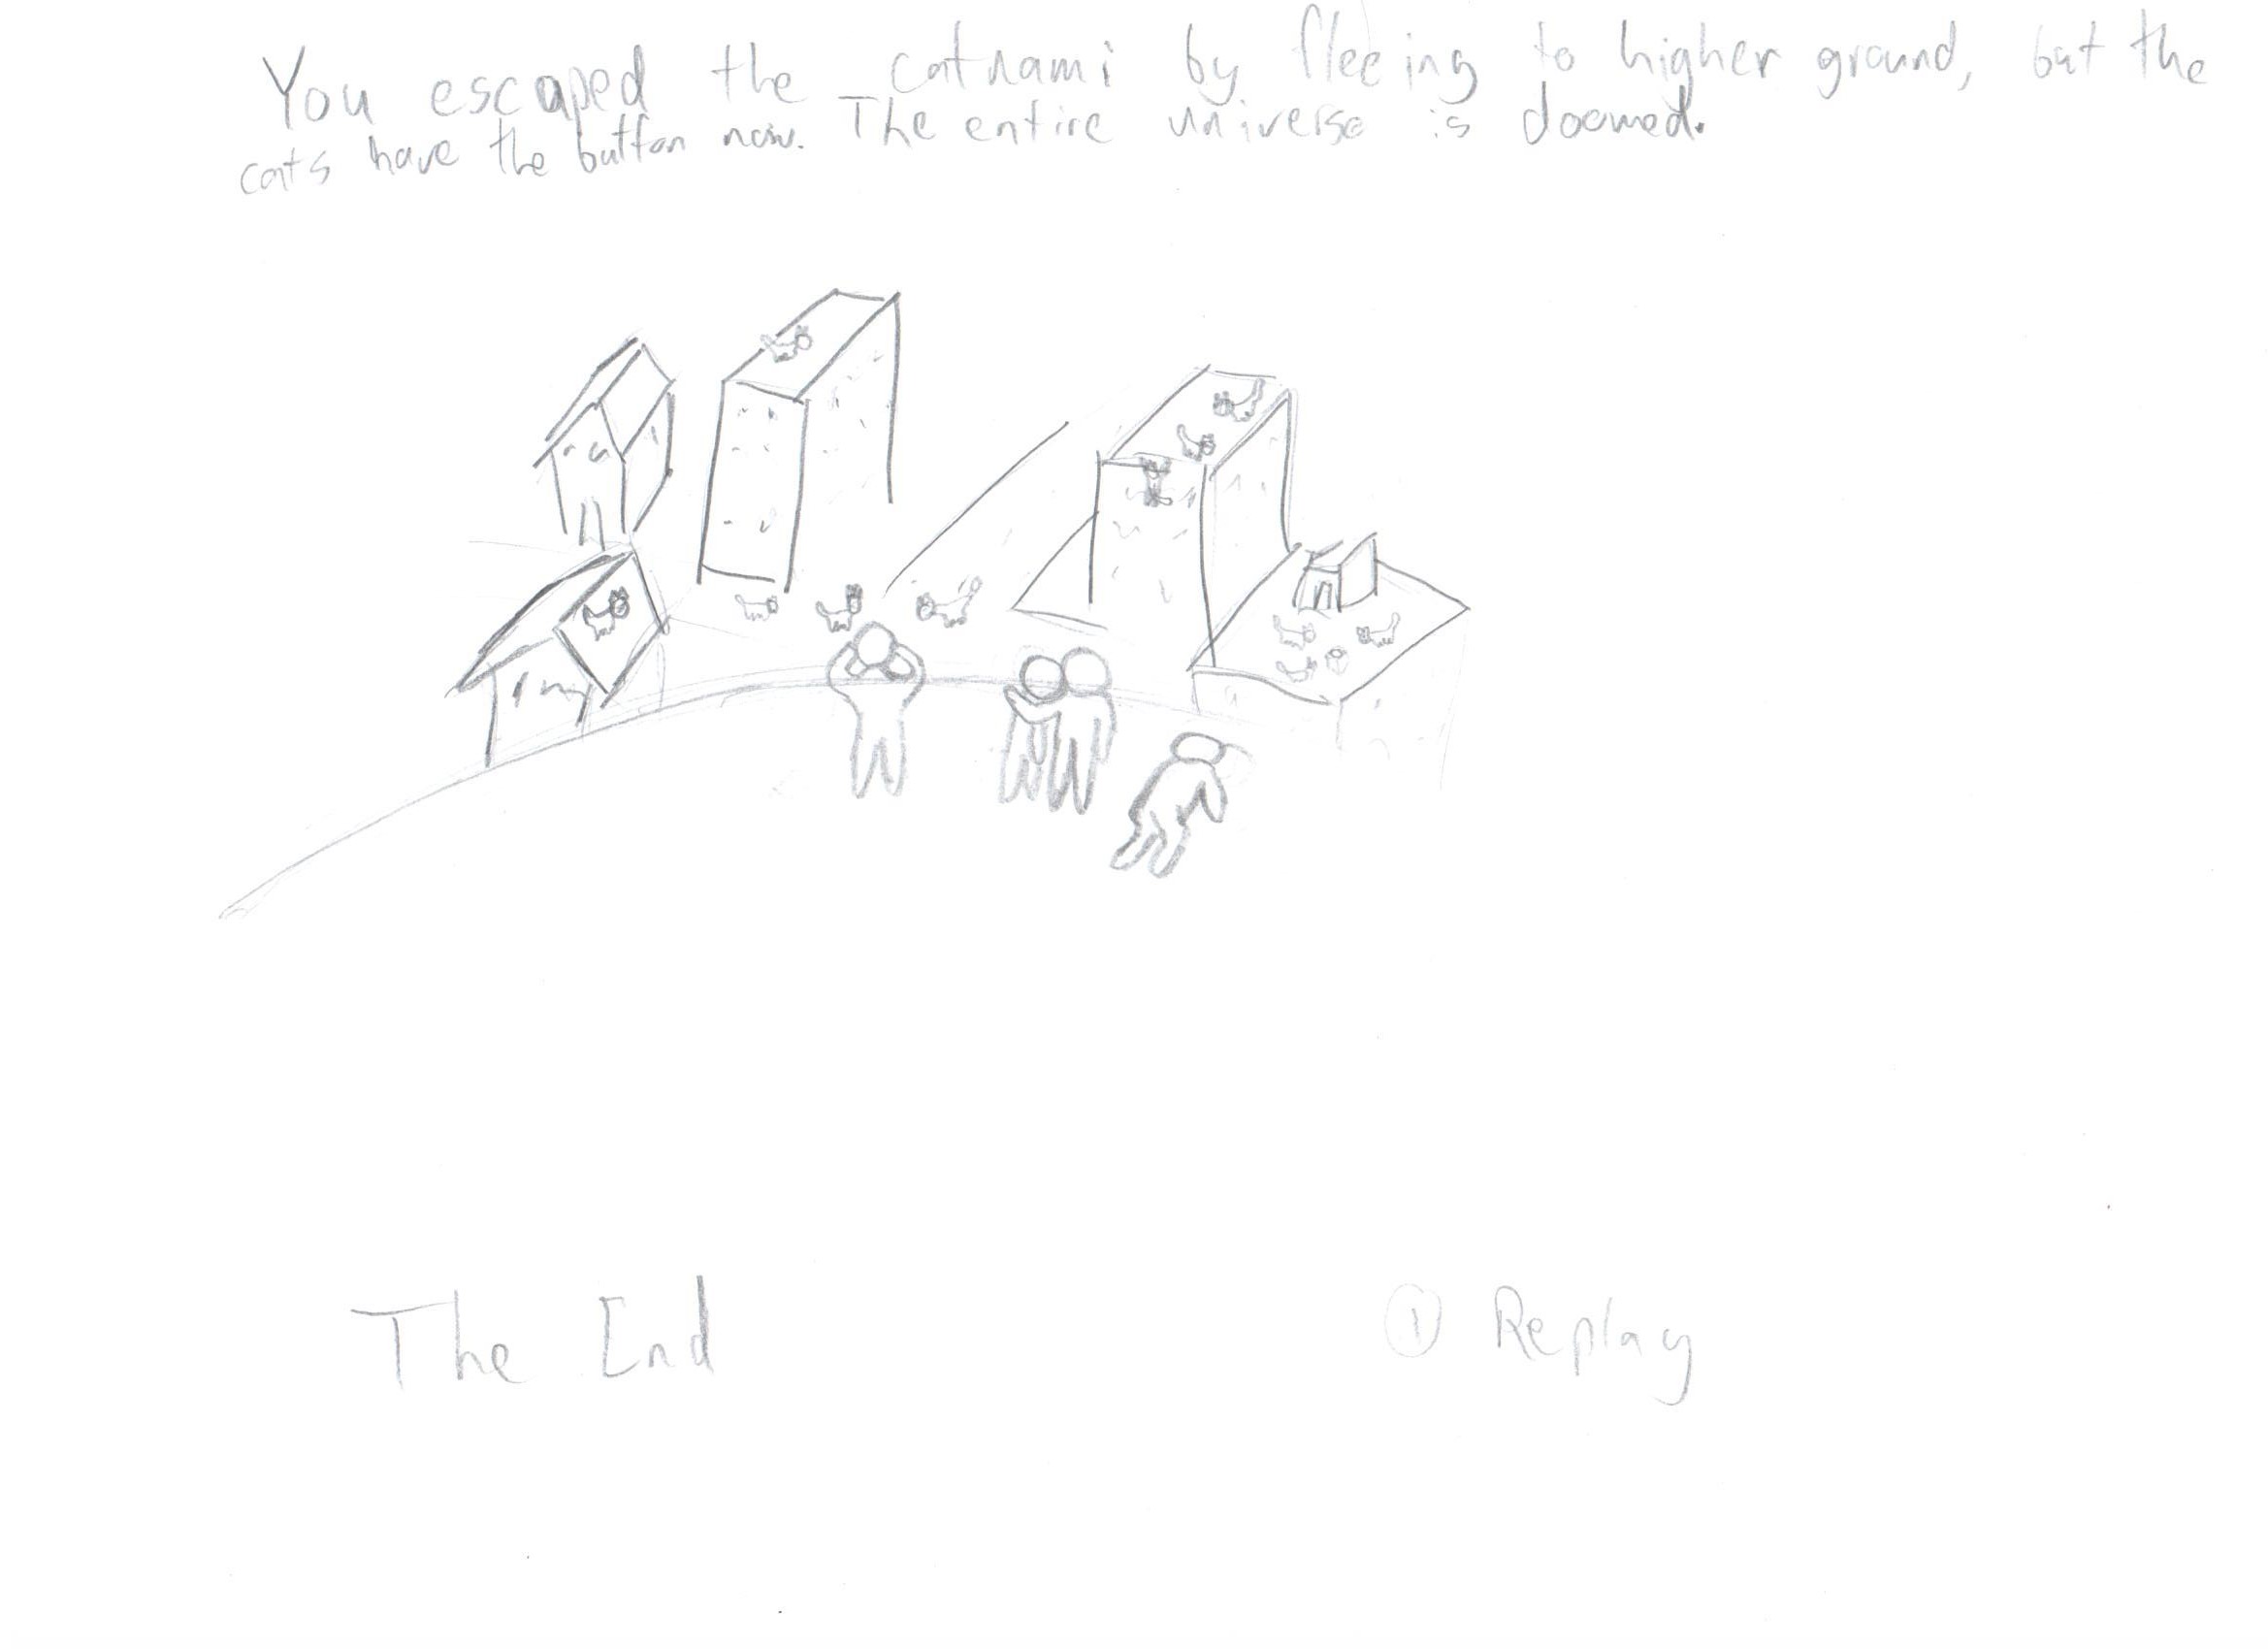 You escaped the catnami by fleeing to higher ground, but the
cats have the button now. The entire universe is doomed.
The End
① Replay